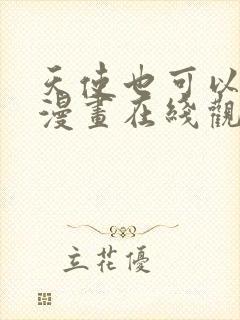 天使也可以
漫畫在綫觀
立花優